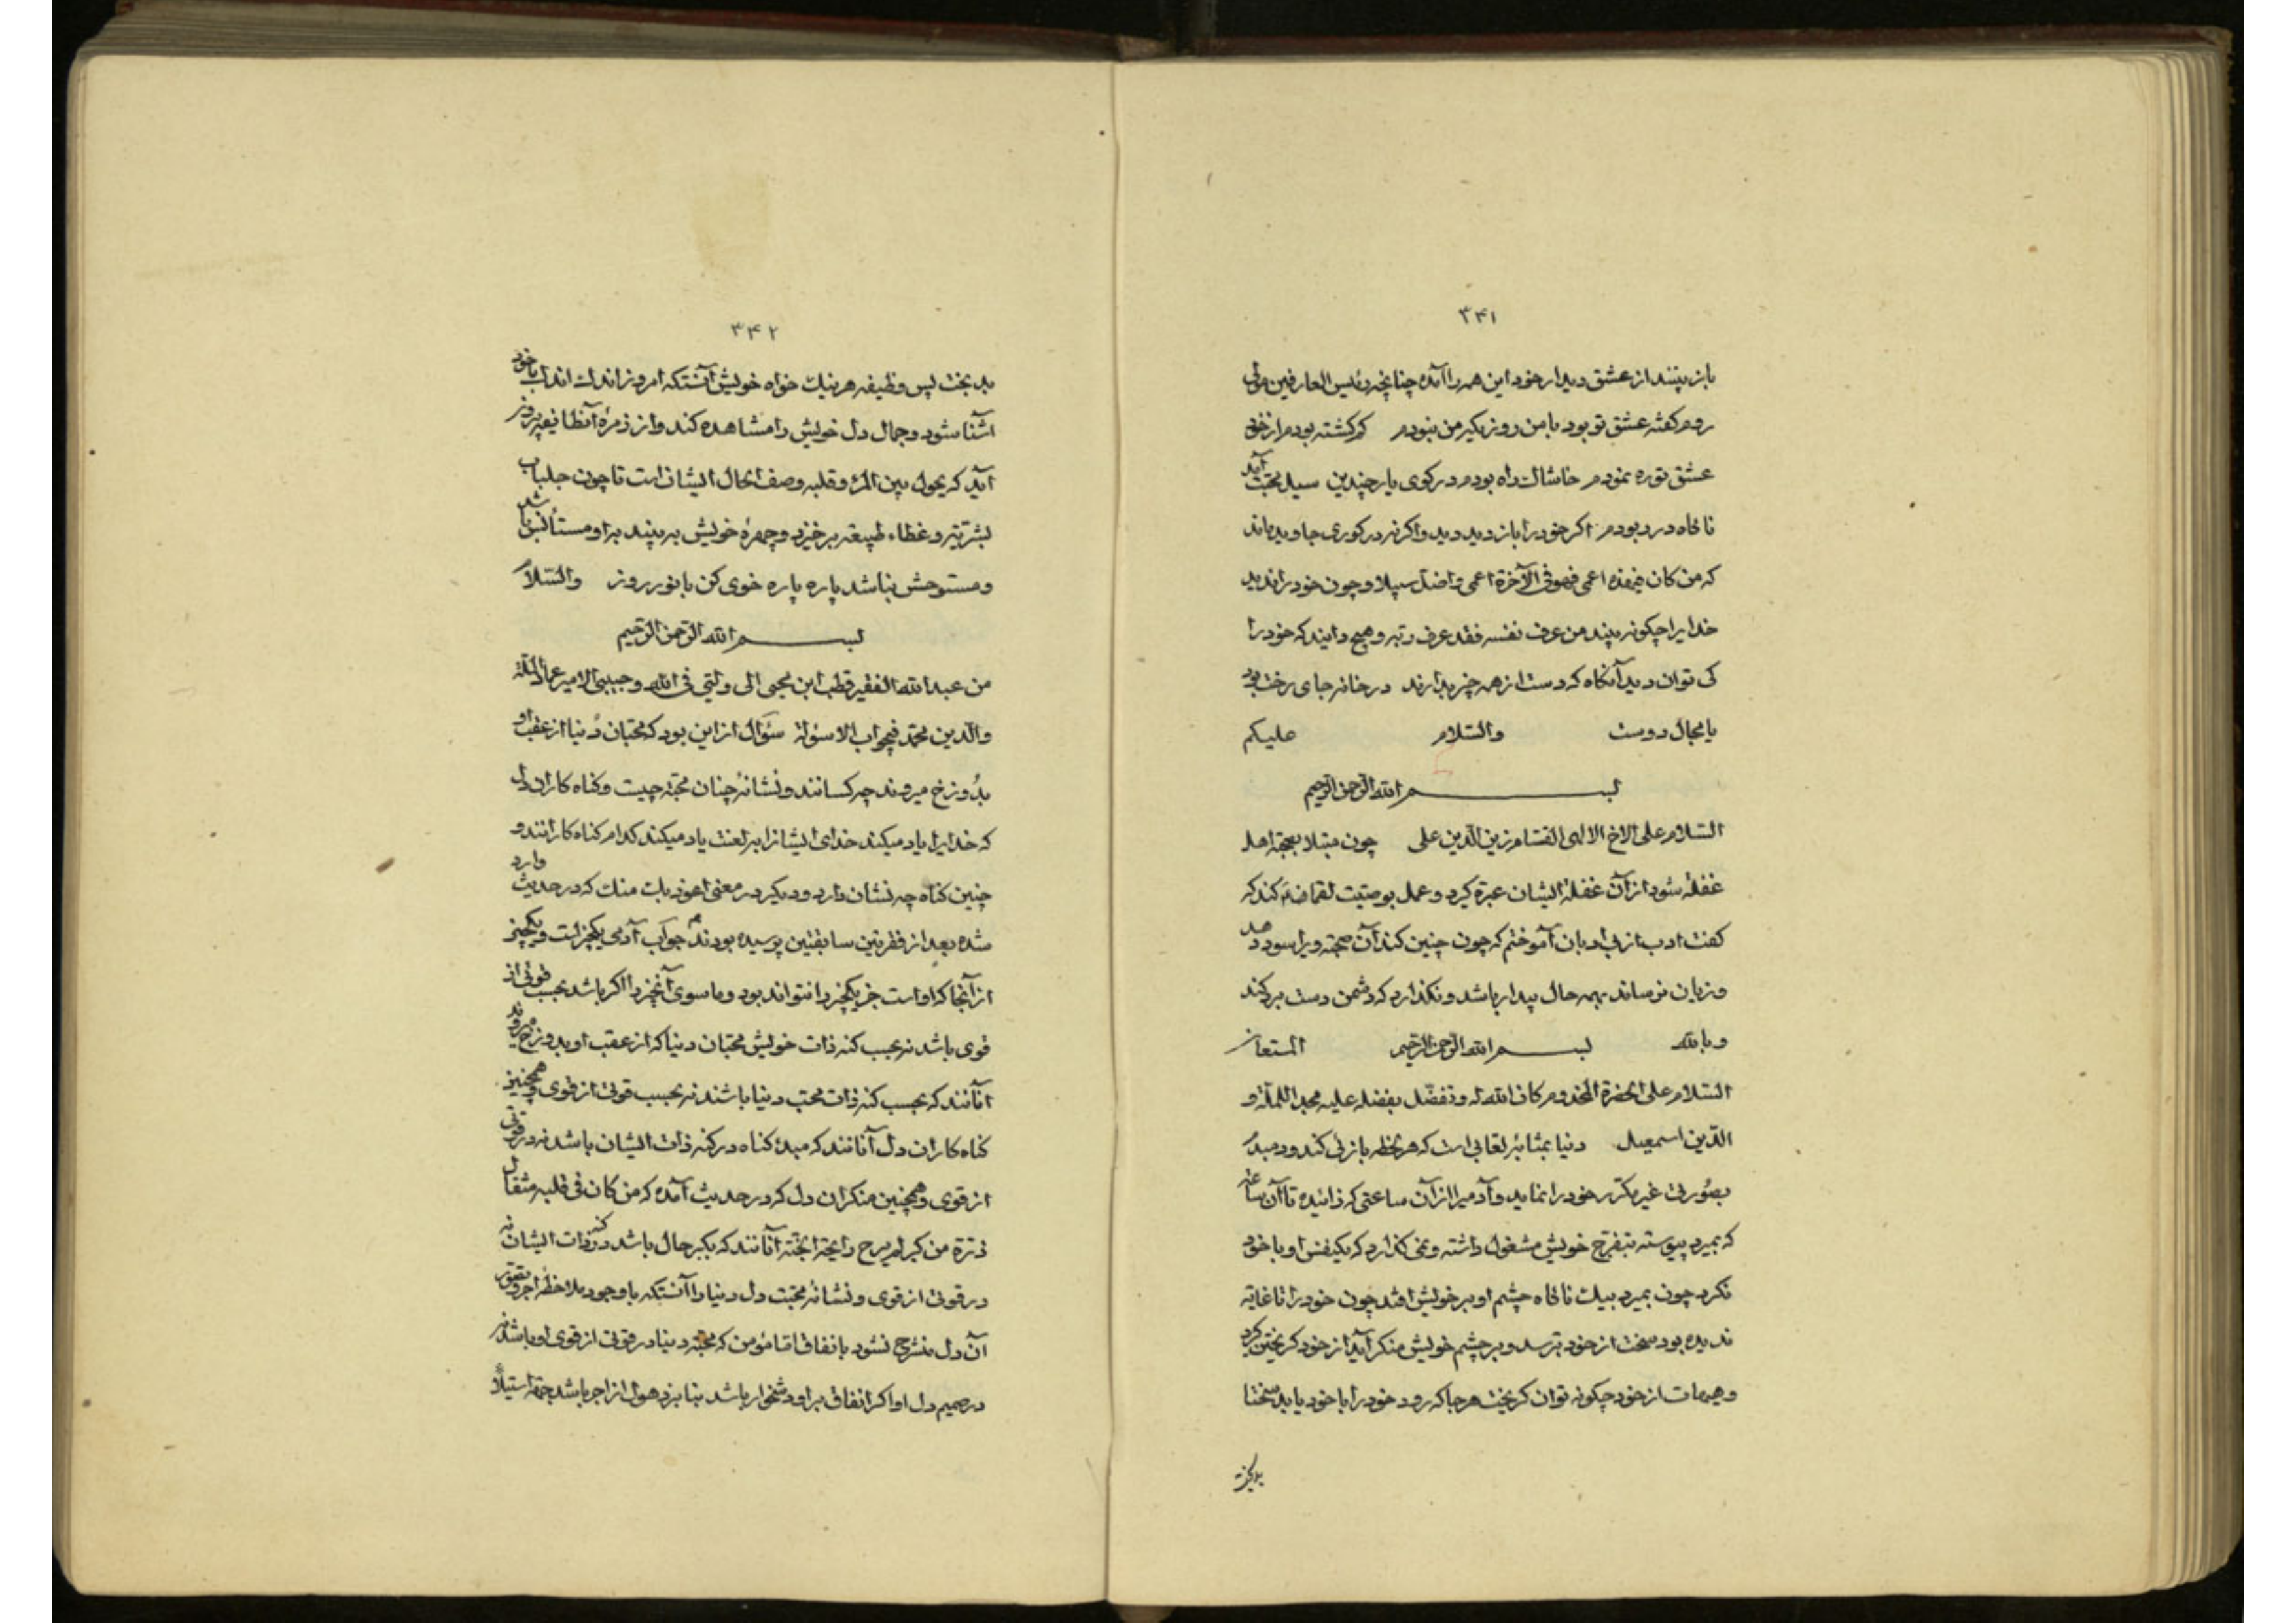 ۳۴۱
باز بینند از عشق دیدار خود این همه را آمده چنانچه رئیس العارفین مولی
روم گفته عشق تو بود با من روزیکه من نبودم گم گشته بودم از خود
عشق تو ره نمودم خاشاک راه بودم در کوی یار چندین سیل محبت آمد
ناگاه در ربودم اگر خود را باز دید دید واگرنه در کوری جاوید ماند
که من کان فیهذه اعمی فهو فی الآخرة اعمی واضل سبیلا و چون خود را ندید
خدا یرا چگونه بیند من عرف نفسه فقد عرف ربه و هیچ دانید که خود را
کی توان دید آنگاه که دست از همه چیز بدارند در خانه جای رخت بود
یا مجال دوست والسّلام علیکم
بسم الله الرّحمن الرّحیم
السّلام علی الاخ الالهی القسّام زین الدّین علی چون مبتلا بصحبة اهل
غفلة شود از آن غفلة ایشان عبرة گیرد و عمل بوصیّت لقمان کند که
گفت ادب از بی ادبان آموختم که چون چنین کند آن صحبة ویرا سود دهد
و زیان نرساند بهمه حال بیدار باشد و نگذارد که دشمن دست برد کند
وبالله المستعان
بسم الله الرّحمن الرّحیم
السّلام علی الحضرة المخدوم کان الله له و تفضّل بفضله علیه مجد الملّة و
الدّین اسمعیل دنیا بمثابۀ لعابی است که هر لحظه بازئی کند و دمبدم
بصورتی غیر مکرّر خود را نماید و آدمیرا از آن ساعتی که زائیده تا آن ساعة
که بمیرد پیوسته بتفرّج خویش مشغول داشته و نمی گذارد که یکنفس او با خود
نگرد چون بمیرد بیک ناگاه چشم او بر خویش افتد چون خود را تا غایة
ندیده بود سخت از خود بترسد و بر چشم خویش منکر آید از خود گریختن گیرد
و هیهات از خود چگونه توان گریخت هر جا که رود خود را با خود یابد سختا
بدبخت
۳۴۲
بدبخت پس وظیفه هر نیک خواه خویش آنستکه امروز اندک اندک با خود
آشنا شود و جمال دل خویش را مشاهده کند و از زمرۀ آنطایفه بروز
آید که یحول بین المرء و قلبه وصف الحال ایشان است تا چون جلباب
بشریّة و غطاء طبیعة برخیزد و چهرۀ خویش به بیند به او مستأنس باشد
و مستوحش نباشد پاره پاره خوی کن با نور روز والسّلام
بسم الله الرّحمن الرّحیم
من عبدالله الفقیر قطب ابن محیی الی ولیّی فی الله و حبیبی الامیر عماد الملّة
والدّین محمّد فیجواب الاسئولة سؤال از این بود که محبّان دنیا از عقب او
بدوزخ میروند چه کسانند و نشانۀ چنان محبّة چیست و گناه کاران دل
که خدایرا یاد میکند خدای ایشانرا بر لعنت یاد میکند کدام گناه کارانند و
چنین گناه چه نشان دارد و دیگر در معنی اعوذ بک منک که در حدیث وارد
شده بعد از فقرتین سابقتین پرسیده بودند جواب آدمی یکچیز است و یکچیز
از آنجا که او است جز یکچیز را نتواند بود و ما سوی آنچیز را اگر باشد بحسب قوتی از
قوی باشد نه بحسب کنه ذات خویش محبّان دنیا که از عقب او بدوزخ میروند
آنانند که بحسب کنه ذات محبّ دنیا باشند نه بحسب قوتی از قوی و همچنین
گناه کاران دل آنانند که مبدء گناه در کنه ذات ایشان باشد نه در قوتی
از قوی و همچنین منکران دل که در حدیث آمده که من کان فی قلبه مثقال
ذرّة من کبر لم یرح رایحة الجنّة آنانند که بکبر حال باشد در کنه ذات ایشان نه
در قوتی از قوی و نشانۀ محبّت دل دنیا را آنستکه با وجود ملاحظۀ اجر و تصوّر
آن دل منشرح نشود بانفاق امّا مؤمن که محبّة دنیا در قوتی از قوی او باشد نه
در صمیم دل او اگر انفاق بر او دشخوار باشد بنابر ذهول از اجر باشد جهة استیلاء